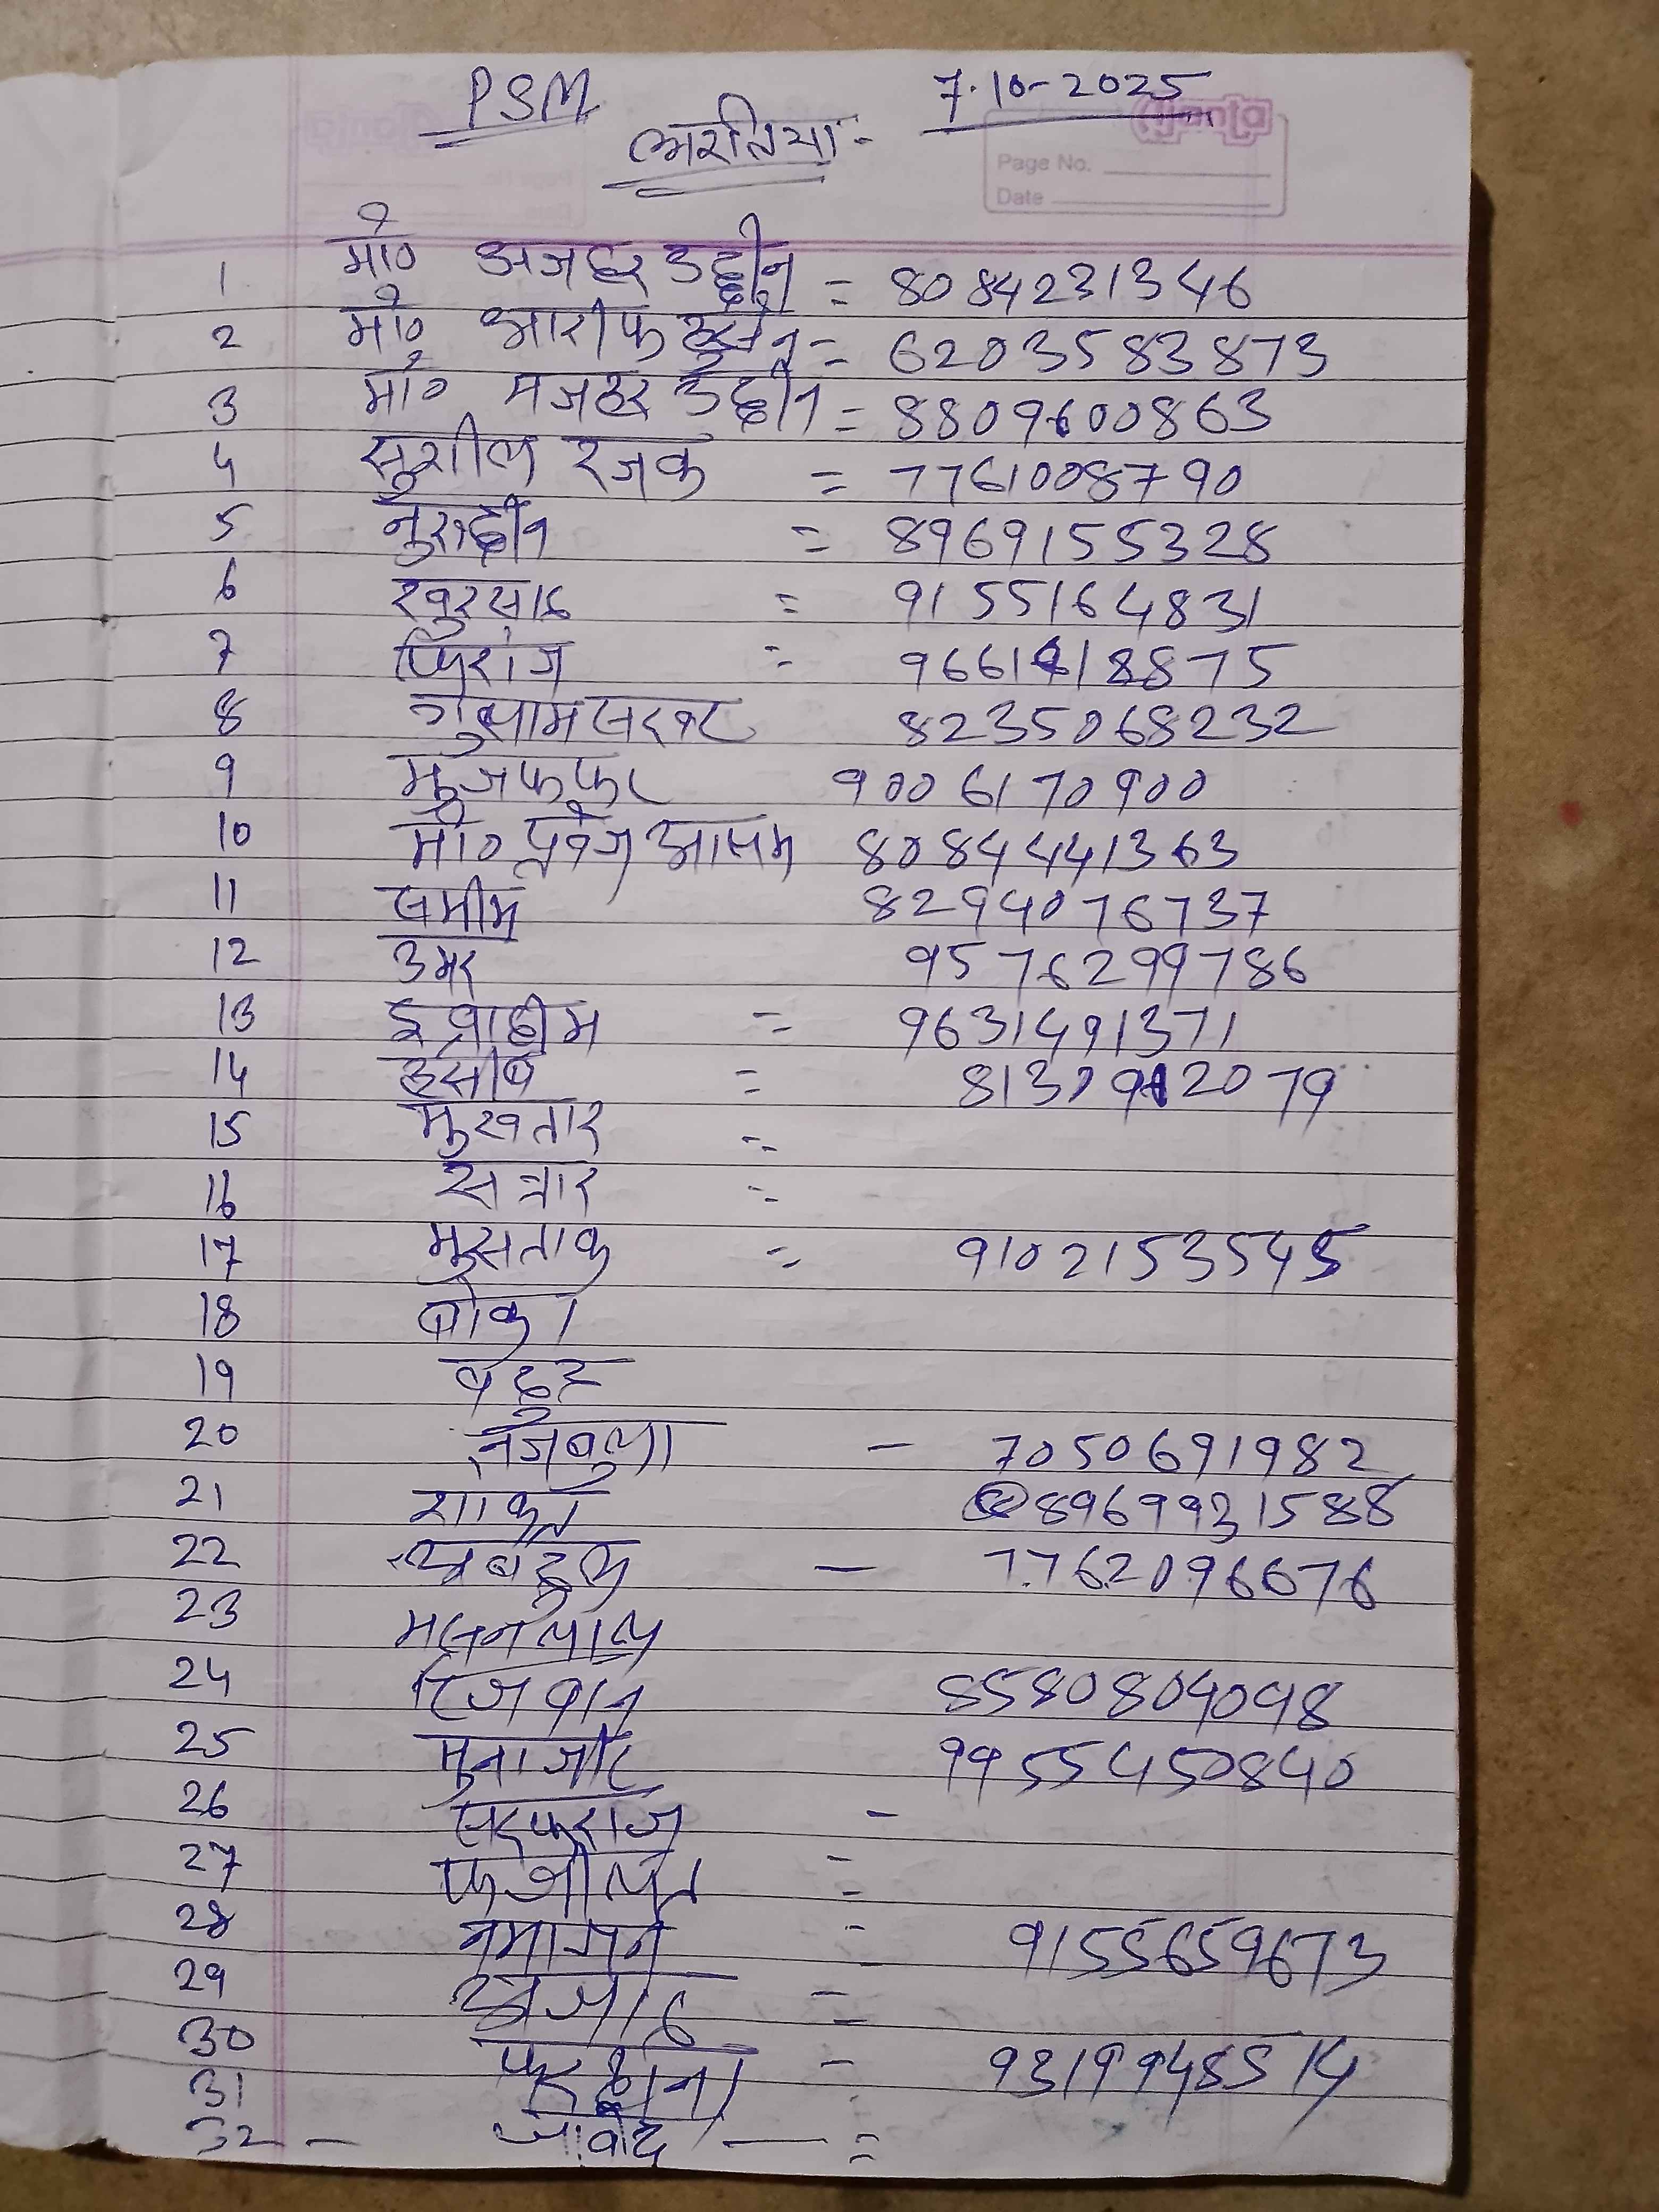 PSM
7.10-2025
Ajanta
भरतिया -
Page No.
Date
1 मो० अजहर उद्दीन = 8084231346
2 मो० आरीफ हुसेन = 6203583873
3 मो० मजहर उद्दीन = 8809600863
4 सुशील रजक = 7761008790
5 नुरुद्दीन = 8969155328
6 खुरसाद = 9155164831
7 फिरोज = 9661418875
8 गुलाम सरवर 8235068232
9 मुजफफर 9006170900
10 मो० प्रवेज आलम 8084441363
11 समीम 8294076737
12 उमर 9576299786
13 इब्राहीम = 9631491371
14 हसीब = 8130912079
15 मुखतार =
16 सत्तार =
17 मुसताक = 9102153545
18 बोका
19 बदुर
20 नजबुला - 7050691982
21 शाकत 8969931588
22 अबदुल - 7762096676
23 मदन लाल
24 रिजवान 8580804098
25 मुनाजीर 9955450840
26 सरफराज -
27 फजीलत =
28 = 9155659673
29 =
30 फरहाना - 9319948514
31 =
32 - जावेद - =